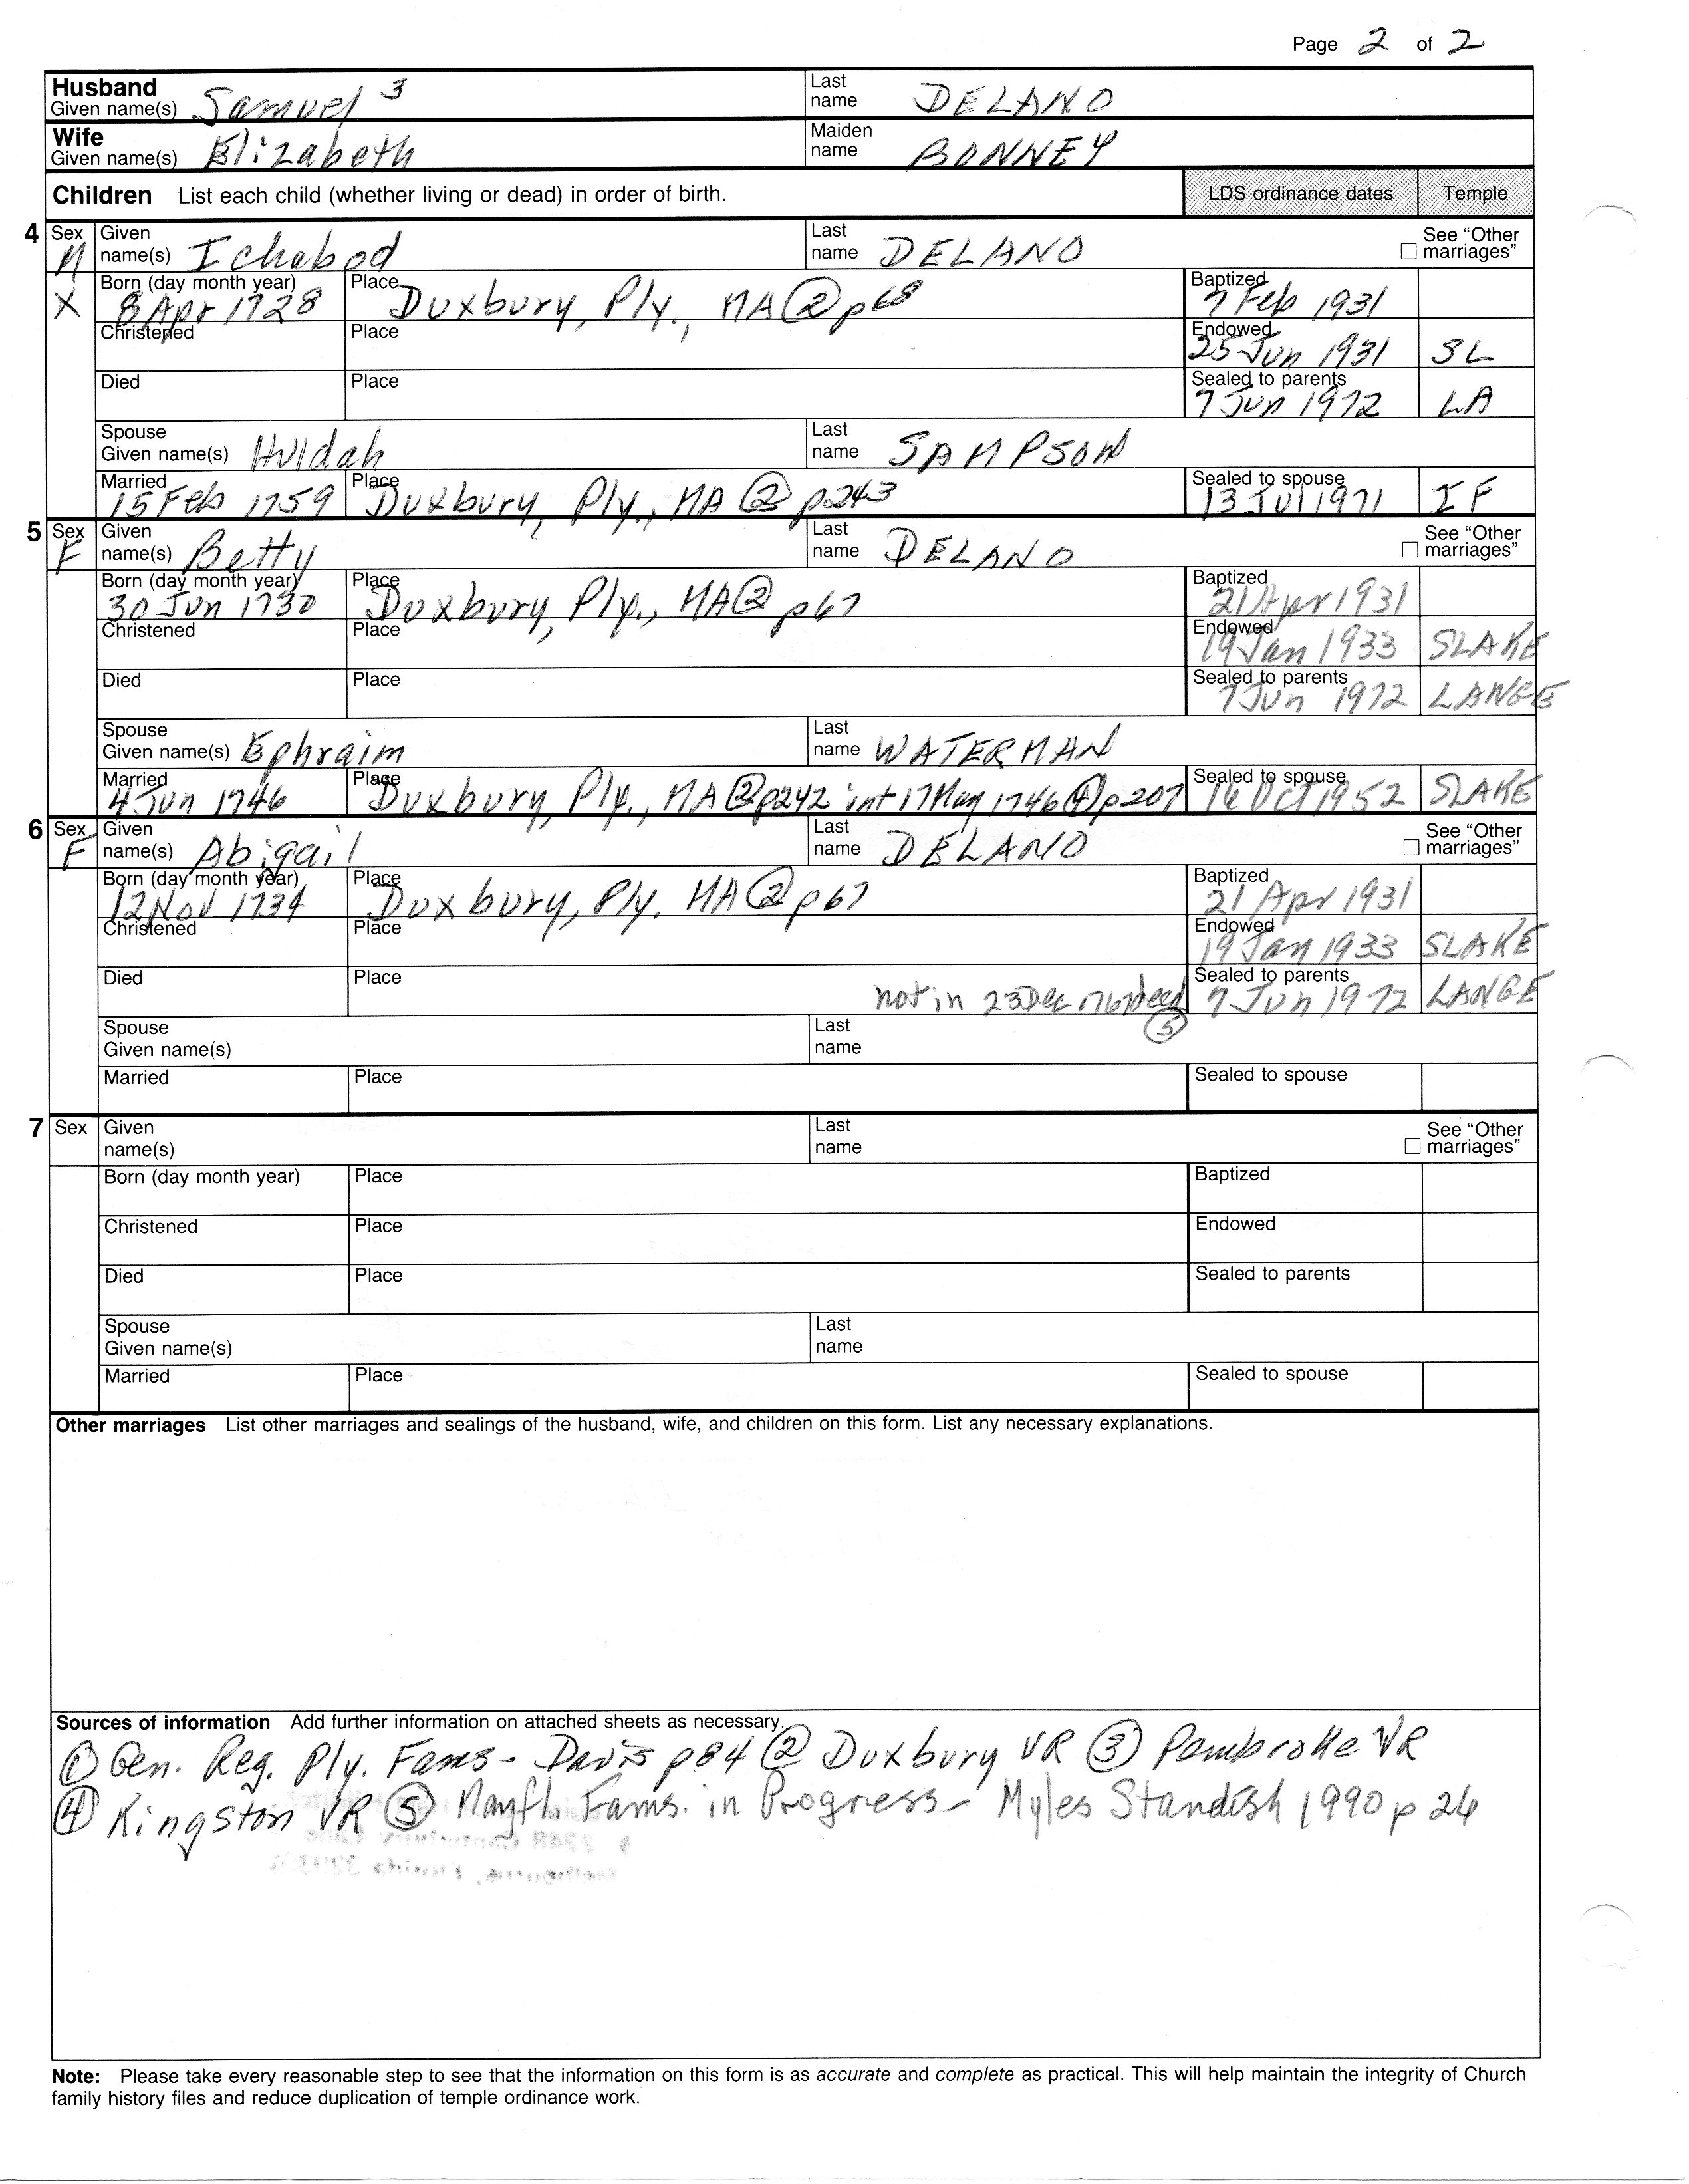 Page 2 of 2
Husband Given name(s) Samuel 3 Last name DELANO
Wife Given name(s) Elizabeth Maiden name BONNEY
Children List each child (whether living or dead) in order of birth. LDS ordinance dates Temple
4 Sex M Given name(s) Ichabod Last name DELANO See “Other marriages”
X Born (day month year) 8 Apr 1728 Place Duxbury, Ply., MA ② p68 Baptized 7 Feb 1931
Christened Place Endowed 25 Jun 1931 SL
Died Place Sealed to parents 7 Jun 1972 LA
Spouse Given name(s) Huldah Last name SAMPSON
Married 15 Feb 1759 Place Duxbury, Ply., MA ② p243 Sealed to spouse 13 Jul 1971 IF
5 Sex F Given name(s) Betty Last name DELANO See “Other marriages”
Born (day month year) 30 Jun 1730 Place Duxbury, Ply., MA ② p67 Baptized 21 Apr 1931
Christened Place Endowed 19 Jan 1933 SLAKE
Died Place Sealed to parents 7 Jun 1972 LANGE
Spouse Given name(s) Ephraim Last name WATERMAN
Married 4 Jun 1746 Place Duxbury, Ply., MA ② p242 int 17 May 1746 ④ p207 Sealed to spouse 16 Oct 1952 SLAKE
6 Sex F Given name(s) Abigail Last name DELANO See “Other marriages”
Born (day month year) 12 Nov 1734 Place Duxbury, Ply. MA ② p67 Baptized 21 Apr 1931
Christened Place Endowed 19 Jan 1933 SLAKE
Died Place not in 23 Dec 1767 deed ⑤ Sealed to parents 7 Jun 1972 LANGE
Spouse Given name(s) Last name
Married Place Sealed to spouse
7 Sex Given name(s) Last name See “Other marriages”
Born (day month year) Place Baptized
Christened Place Endowed
Died Place Sealed to parents
Spouse Given name(s) Last name
Married Place Sealed to spouse
Other marriages List other marriages and sealings of the husband, wife, and children on this form. List any necessary explanations.
Sources of information Add further information on attached sheets as necessary.
① Gen. Reg. Ply. Fams - Davis p84 ② Duxbury VR ③ Pembroke VR
④ Kingston VR ⑤ Mayfl. Fams. in Progress - Myles Standish 1990 p 26
Note: Please take every reasonable step to see that the information on this form is as accurate and complete as practical. This will help maintain the integrity of Church
family history files and reduce duplication of temple ordinance work.